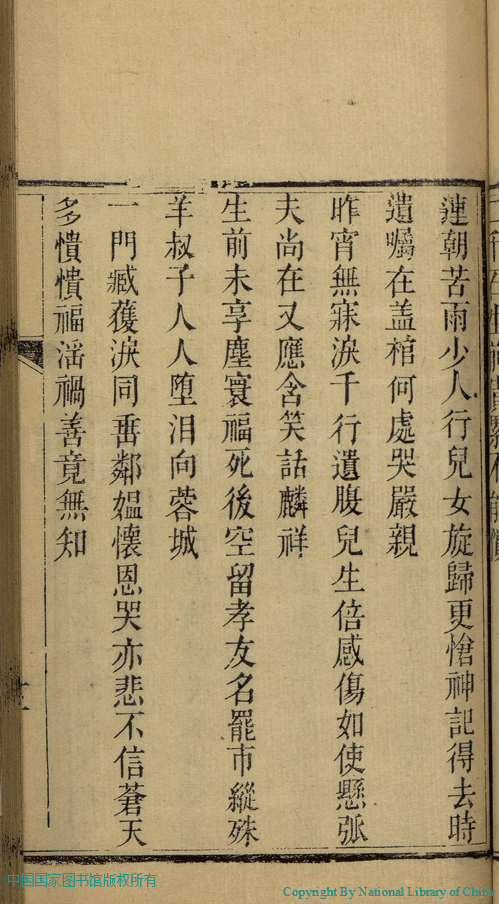 連朝苦雨少人行兒女旋歸更愴神記得去時
遺囑在盖棺何處哭嚴親
昨宵無寐淚千行遺腹兒生倍感傷如使懸弧
夫尚在又應含笑話麟祥
生前未享塵寰福死後空留孝友名罷市縱殊
羊叔子人人堕泪向蓉城
一門臧獲淚同垂鄰媪懷恩哭亦悲不信蒼天
多憒憒福滛禍善竟無知
中国国家图书馆版权所有
Copyright By National Library of China